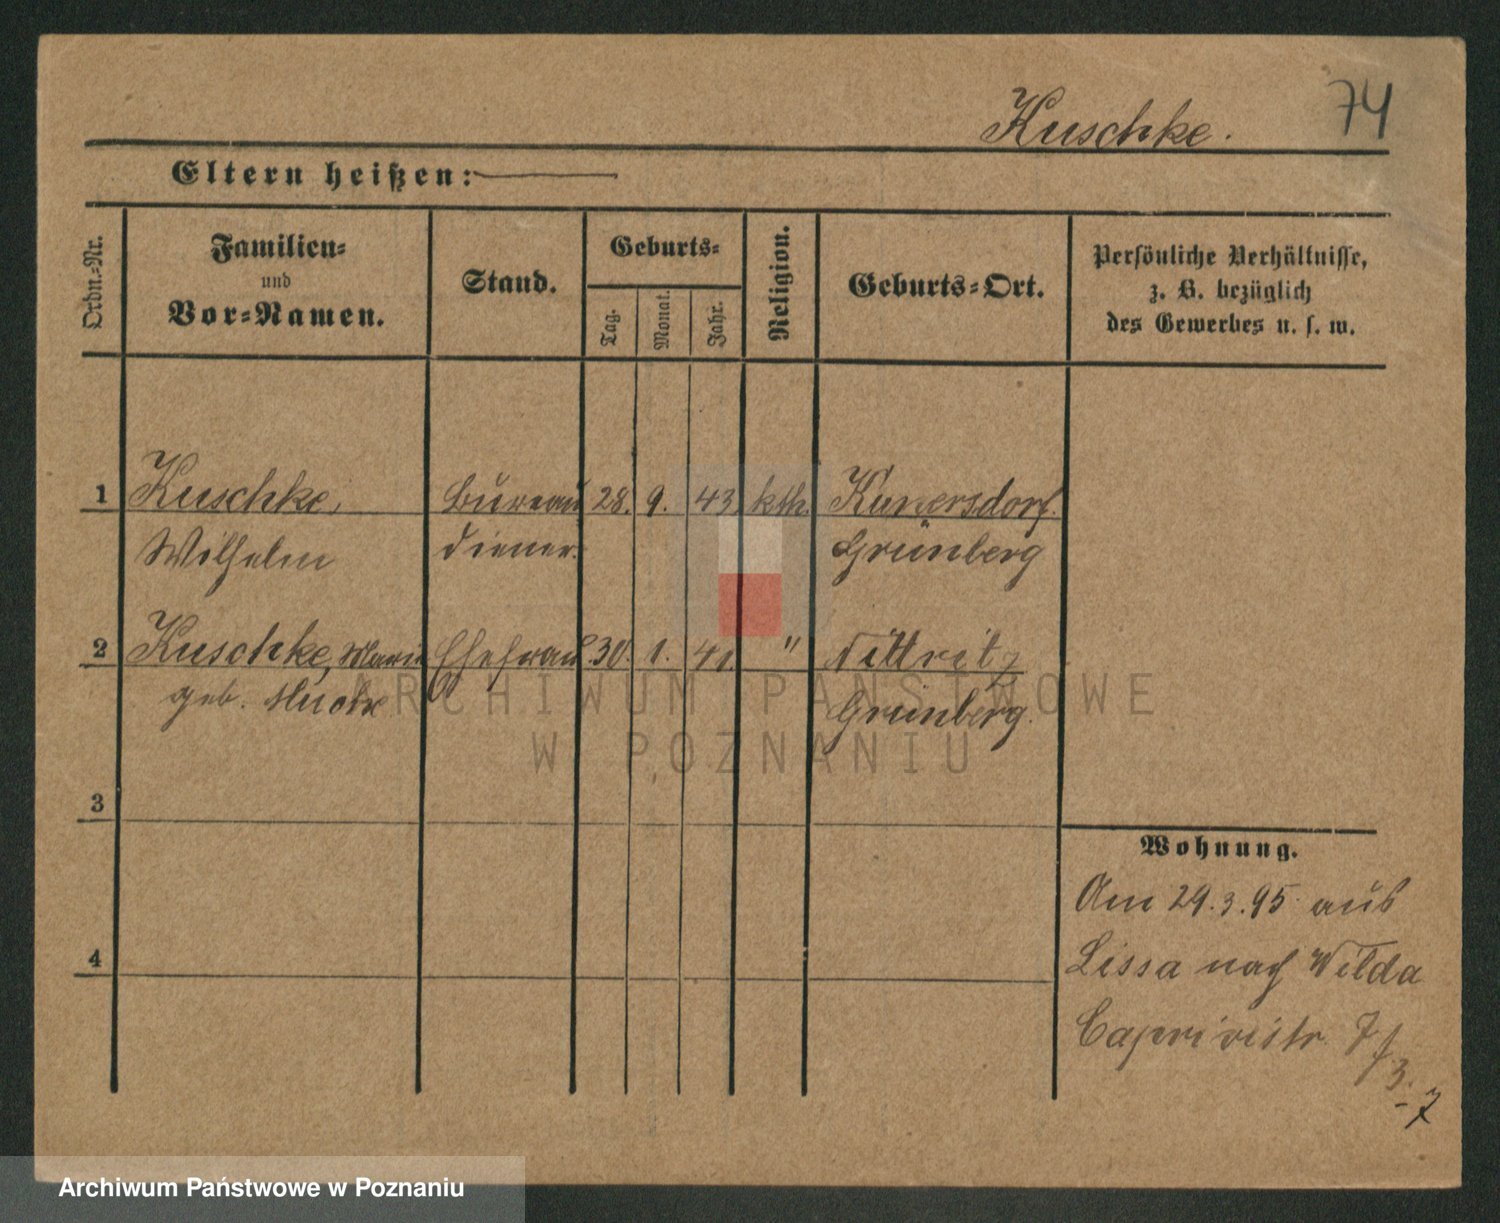 Kuschke. 74
Eltern heißen:
Ordn.-Nr.
Familien- und Vor-Namen.
Stand.
Geburts-
Tag.
Monat.
Jahr.
Religion.
Geburts-Ort.
Persönliche Verhältnisse,
z. B. bezüglich
des Gewerbes u. s. w.
1 Kuschke, Bureau 28. 9. 43. kth. Kunersdorf.
Wilhelm diener. Grünberg
2 Kuschke, Marie Ehefrau 30. 1. 41. " Nittritz
geb. Mucke Grünberg.
3
4
Wohnung.
Am 29.3.95 aus
Lissa nach Wilda
Caprivistr. 7
3.
7
ARCHIWUM PAŃSTWOWE
W POZNANIU
Archiwum Państwowe w Poznaniu